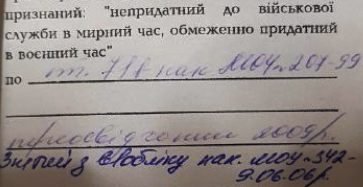 признаний: "непридатний до військової
служби в мирний час, обмеженно придатний
в воєнний час"
по ст. 71в нак. МОУ №207-99
переосвідчення 2009р.
Знятий з в/обліку нак. МОУ-342-
9.06.06р.